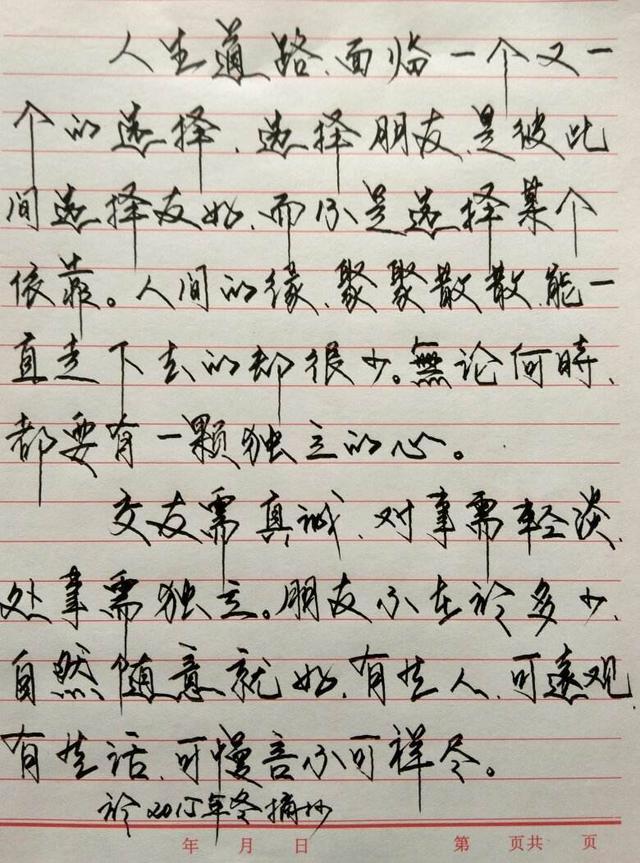 人生道路、面临一个又一
个的选择、选择朋友、是彼此
间选择友好、而不是选择某个
依靠。人间的缘、聚聚散散、能一
直走下去的却很少。無论何時、
都要有一颗独立的心。
交友需真诚、对事需轻淡、
处事需独立。朋友不在於多少、
自然随意就好、有些人、可远观、
有些话、可慢言不可祥尽。
於2015年冬摘抄
年 月 日 第 页共 页